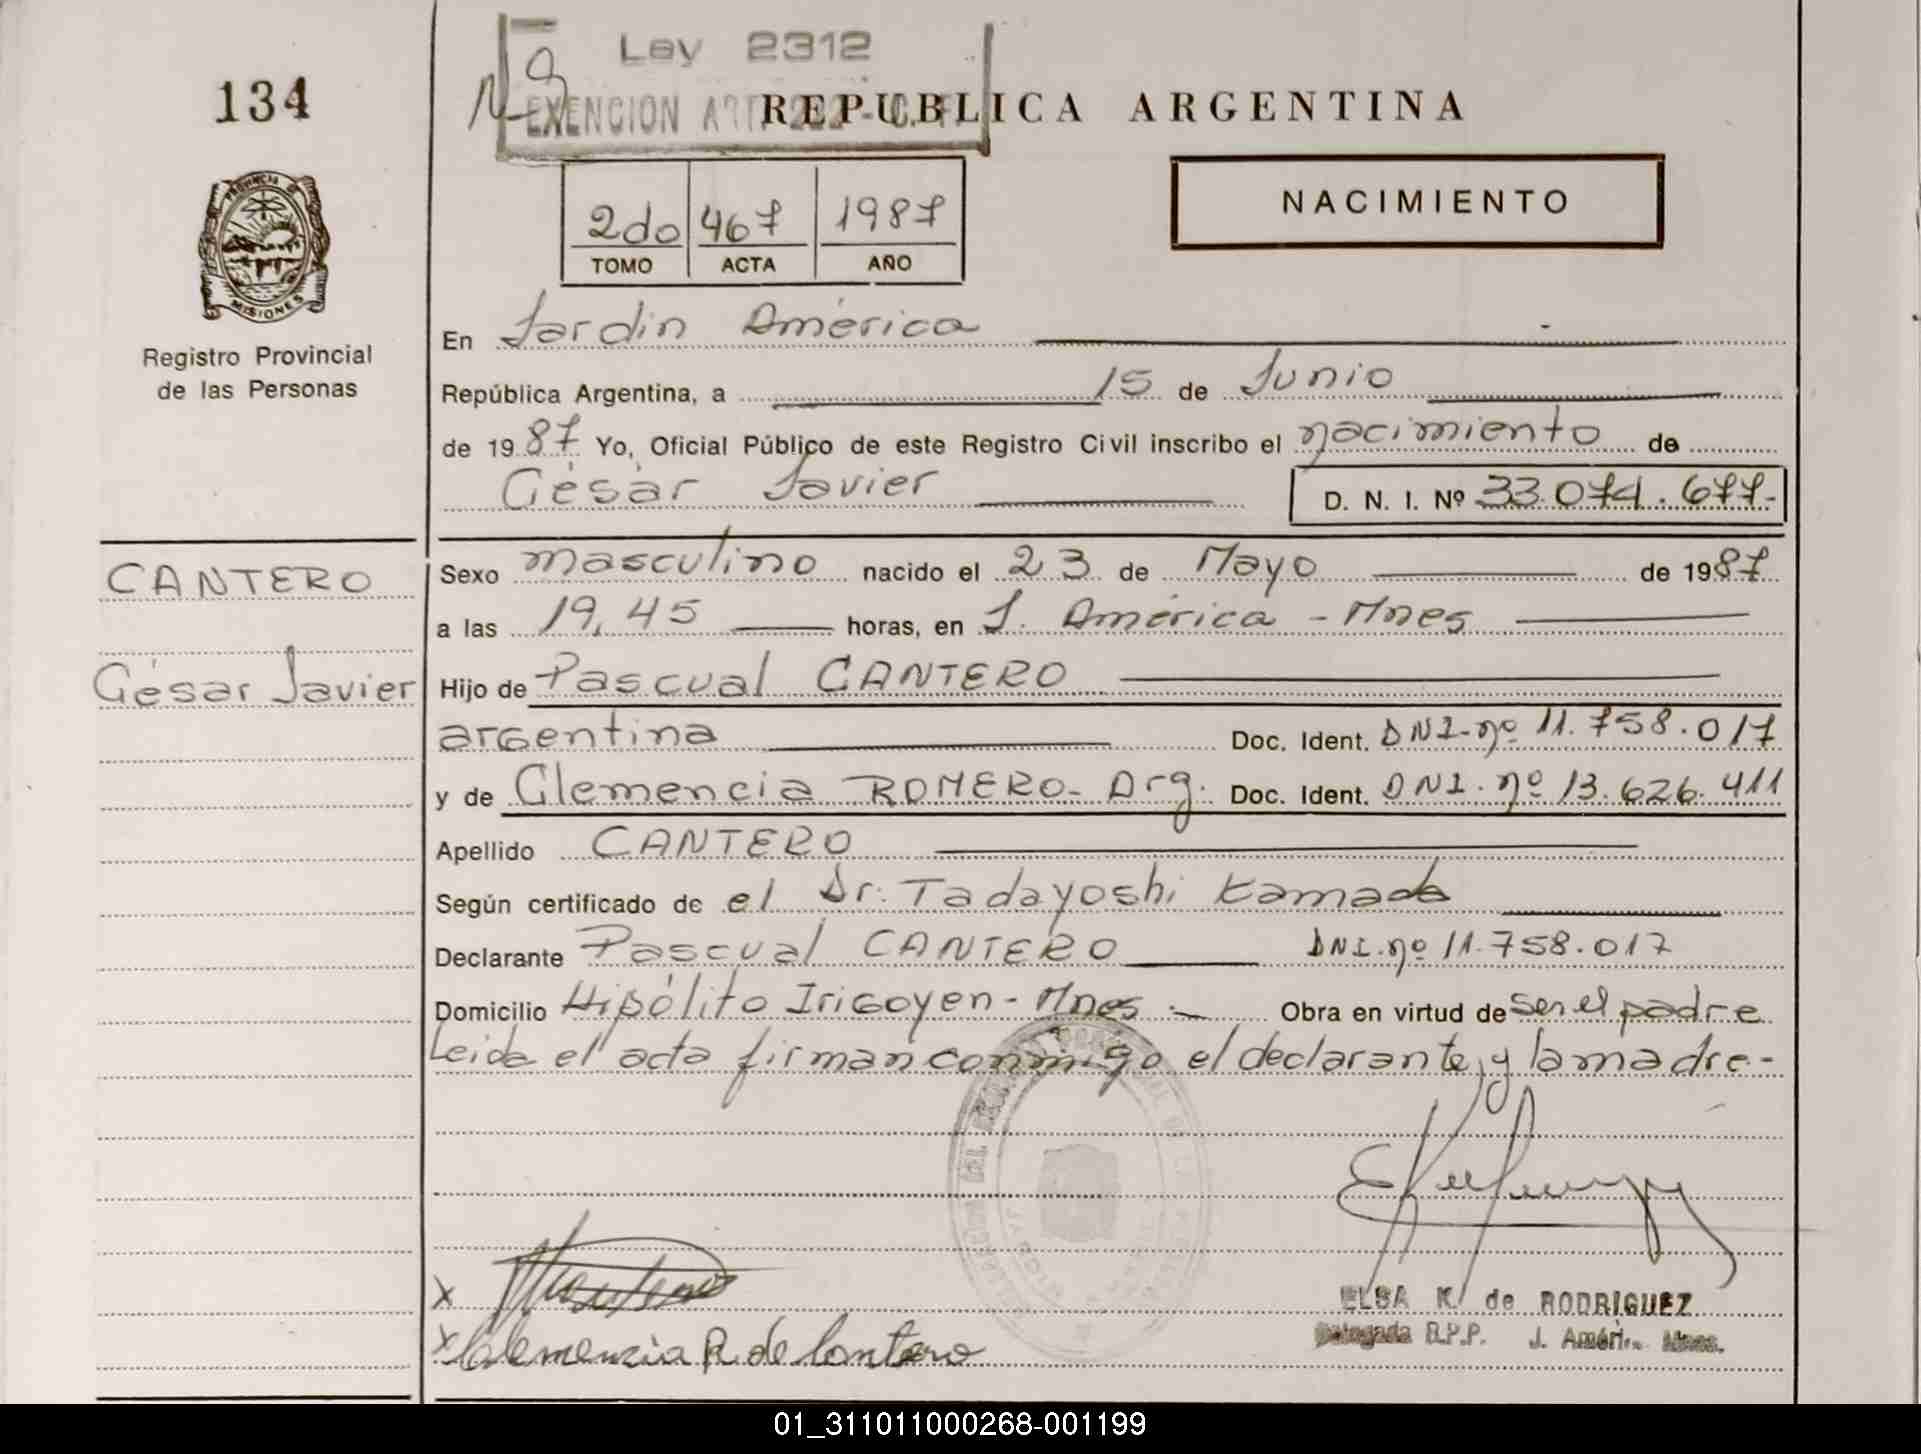 134
Ley 2312
EXENCION ART. 222 - C.F.
REPUBLICA ARGENTINA
NACIMIENTO
2do 467 1987
TOMO ACTA AÑO
PROVINCIA DE
MISIONES
Registro Provincial
de las Personas
En Jardin América
República Argentina, a 15 de Junio
de 1987 Yo, Oficial Público de este Registro Civil inscribo el nacimiento de
César Javier D. N. I. Nº 33.074.677-
CANTERO
César Javier
Sexo masculino nacido el 23 de Mayo de 1987
a las 19,45 horas, en J. América - Mnes
Hijo de Pascual CANTERO
argentina Doc. Ident. DNI-nº 11.758.017
y de Clemencia ROMERO- Arg. Doc. Ident. DNI. nº 13.626.411
Apellido CANTERO
Según certificado de el Dr. Tadayoshi Kamada
Declarante Pascual CANTERO DNI.nº 11.758.017
Domicilio Hipólito Irigoyen - Mnes Obra en virtud de ser el padre
Leida el acta firman conmigo el declarante, y la madre-
X
X Clemencia R. de Cantero
ELSA K. de RODRIGUEZ
Delegada R.P.P. J. Améri. Mnes.
01_311011000268-001199